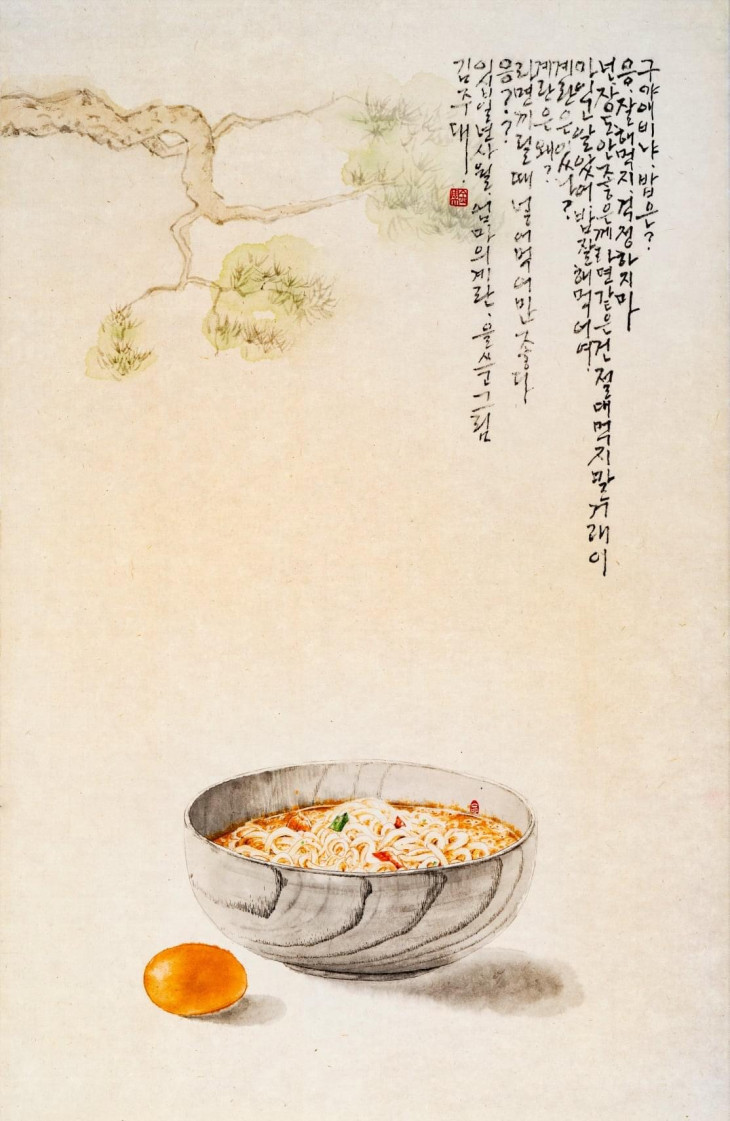 구야애비냐. 밥은?
응, 잘해먹지 걱정하지마
넌 장도안좋은께 라면같은건 절대먹지말그래이
알았어. 밥잘해먹어여.
계란은있나?
계란은 왜?
라면끼릴때 넣어먹어만 좋다
응??
이십일년사월. 엄마의계란, 을쓰고그림
김주대.